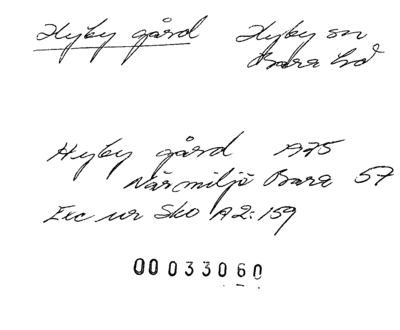 Hyby gård Hyby sn
Bara hd
Hyby gård 1975
Närmiljö Bara 57
Exc ur Sko A2:159
00033060